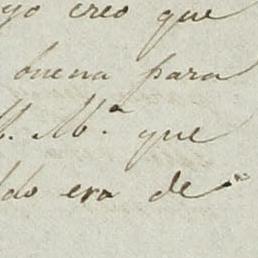 yo creo que
buena para
M.ª que
do era de